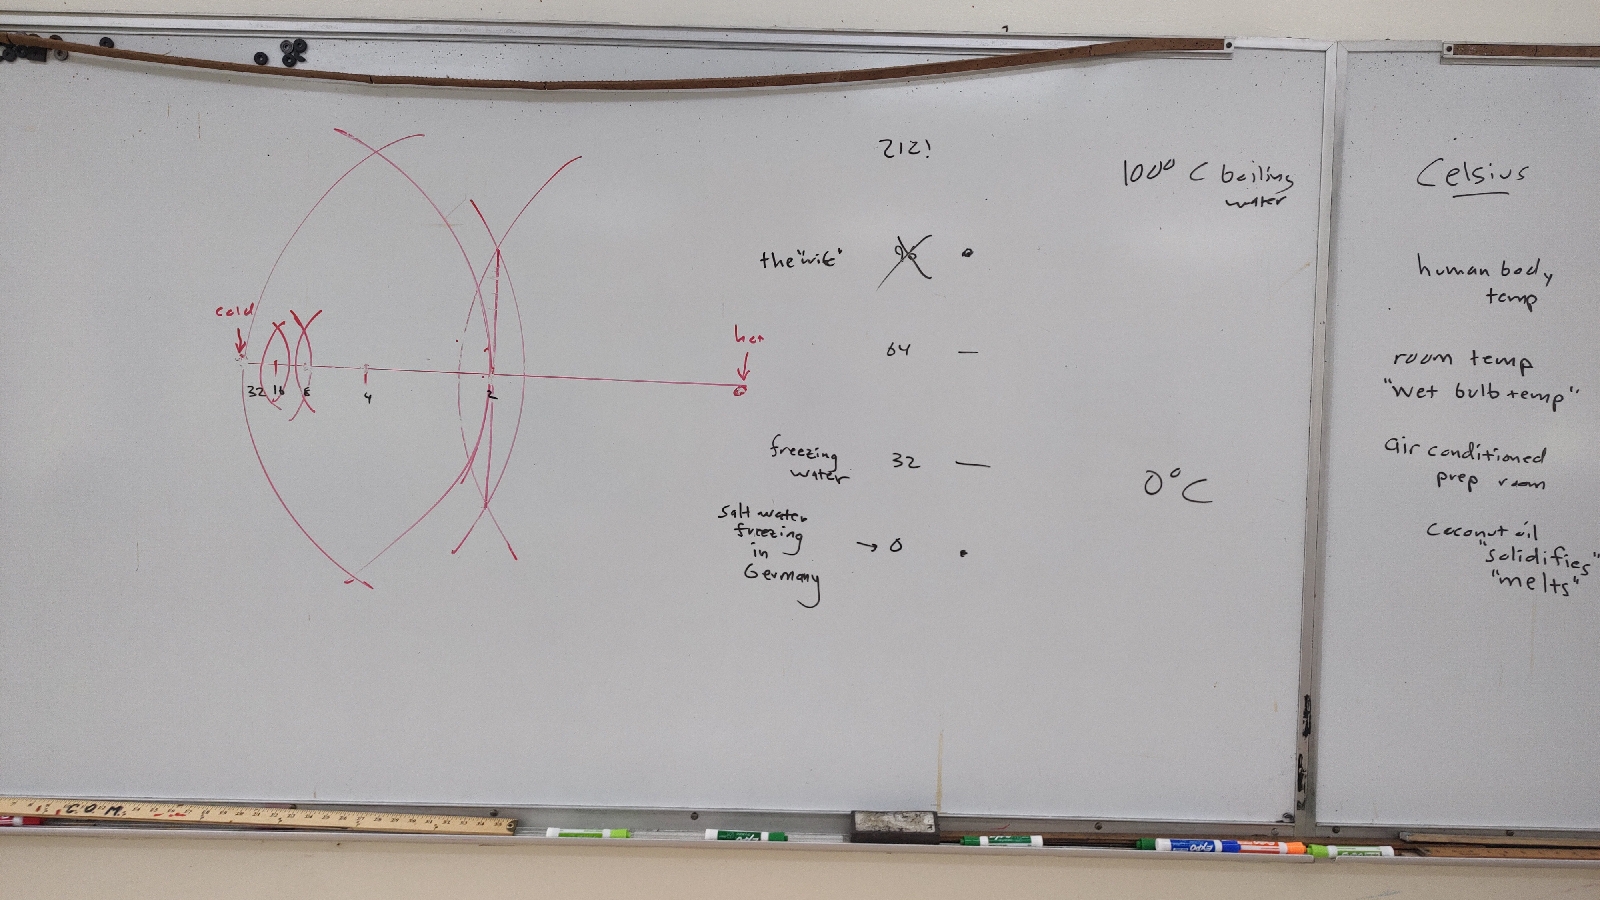 cold
hot
32 16 8 4 2
212!
the "wife" 96
64
freezing
water 32
salt water
freezing
in
Germany → 0
100° C boiling
water
0°C
Celsius
human body
temp
room temp
"Wet bulb temp"
air conditioned
prep room
Coconut oil
"solidifies"
"melts"
C.O.M.
EXPO